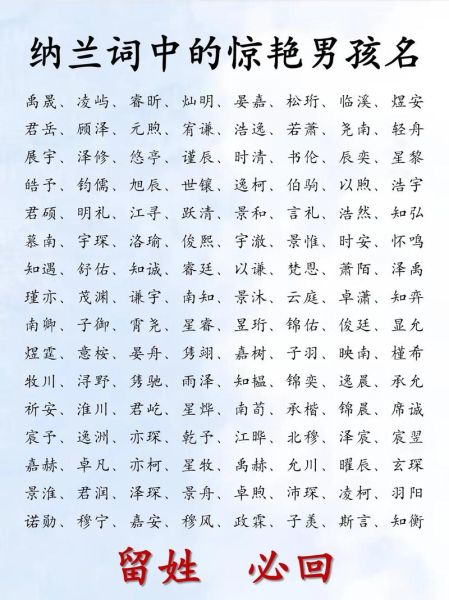 纳兰词中的惊艳男孩名
禹晟、凌屿、睿昕、灿明、晏嘉、松珩、临溪、煜安
君岳、顾泽、元煦、宥谦、浩逸、若萧、尧南、轻舟
展宇、泽修、悠亭、谨辰、时清、书伦、辰奕、星黎
皓予、钧儒、旭辰、世镶、逸柯、伯驹、以煦、浩宇
君硕、明礼、江寻、跃清、景和、言礼、浩然、知弘
慕南、宇琛、洛瑜、俊熙、宇澈、景惟、时安、怀鸣
知遇、舒佑、知诚、睿廷、以谦、梵恩、萧陌、泽禹
瑾亦、茂渊、谦宇、南知、景沐、云庭、卓潇、知弈
南卿、子御、霄尧、星睿、昱珩、锦佑、俊廷、显允
煜霆、意桉、晏舟、隽翊、嘉树、子羽、映南、槿希
牧川、浔野、隽驰、雨泽、知韫、锦奕、逸晨、承允
祈安、淮川、君屹、星烨、南荀、承楷、锦晨、席诚
宸予、逸洲、亦琛、乾予、江晔、北穆、泽宸、宸翌
嘉赫、卓凡、亦柯、星牧、禹赫、允川、曜辰、玄琛
景淮、君润、泽琛、景舟、卓煦、沛琛、凌柯、羽阳
诺勋、穆宁、嘉安、穆风、政霖、子羡、斯言、知衡
留姓 必回